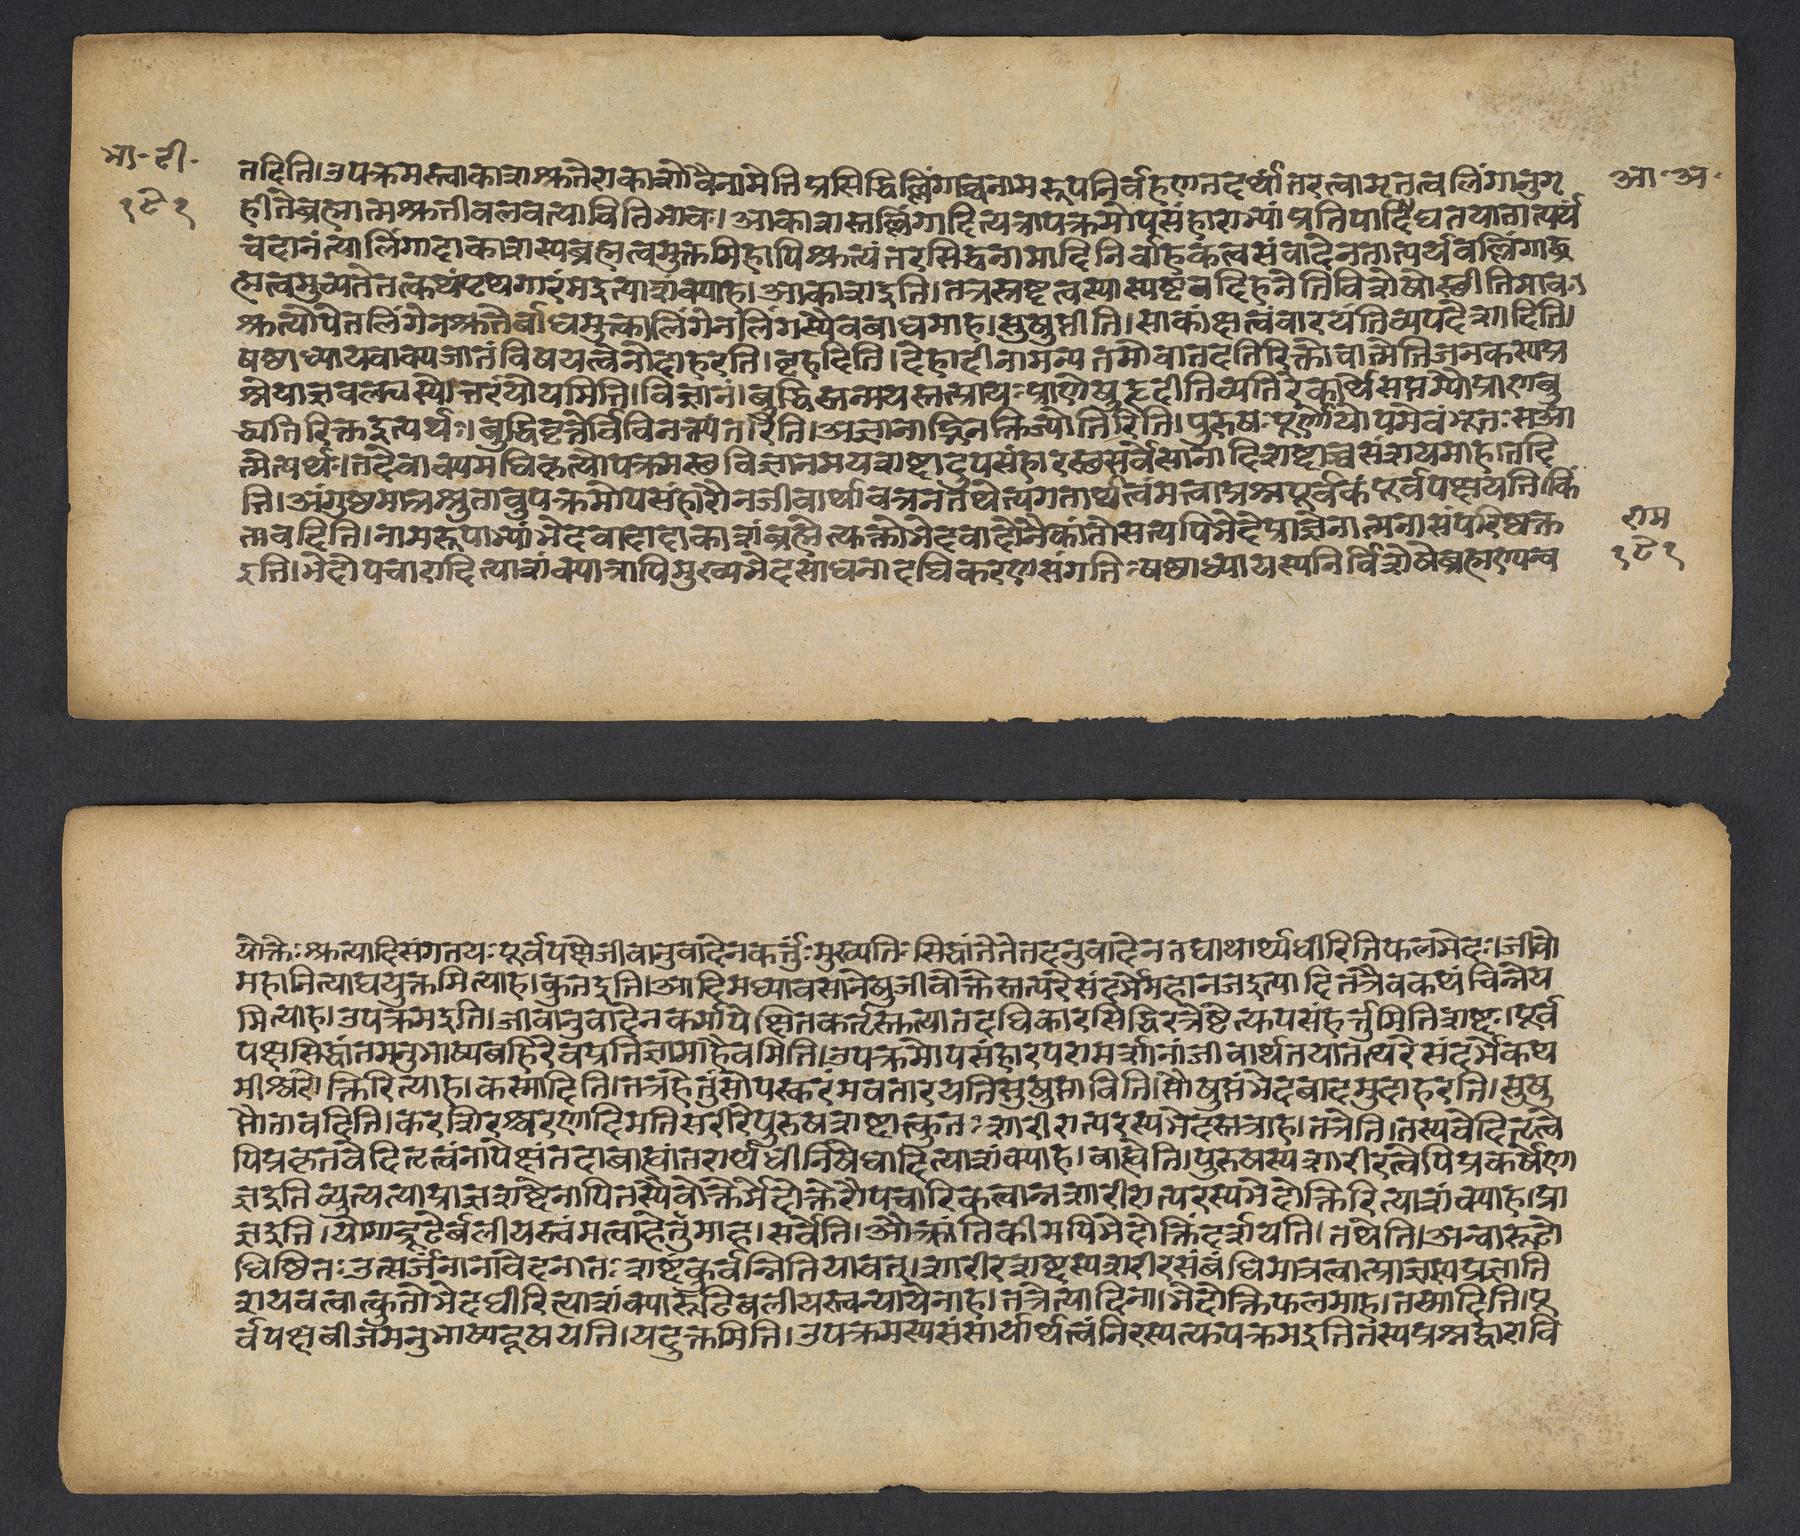 भा. टी.
१८१
आ. अ.
तदिति।उपक्रमस्त्वाकाशश्रुतेराकाशोवैनामेतिप्रसिद्धिलिंगाच्चनामरूपनिर्वहणतदर्थांतरत्वामृतत्वलिंगानुगृ
हीतेब्रह्मात्मश्रुतीबलवत्यावितिभावः।आकाशस्तल्लिंगादित्यत्रोपक्रमोपसंहाराभ्यांप्रतिपादिघतयातात्पर्य
वदानंत्यालिंगादाकाशस्यब्रह्मत्वमुक्तमिहापिश्रुत्यंतरसिद्धनामादिनिर्वाहकत्वसंवादेनतात्पर्यवल्लिंगाद्ब्र
ह्मत्वमुच्यतेतत्कथंपृथगारंभइत्याशंक्याह।आकाशइति।तत्रस्पष्टत्वस्यास्पष्टंवदिहनेतिविशेषोस्तीतिभावः
श्रुत्योपेतलिंगेनश्रुतेर्बाधमुत्कालिंगेनलिंगस्यैवबाधमाह।सुषुप्तीति।साकांक्षत्वंवारयतिव्यपदेशादिति।
षष्ठाध्यायवाक्यजातंविषयत्वेनोदाहरति।बृहदिति।देहादीनामन्यतमोवातदतिरिक्तोवात्मेतिजनकस्यप्र
श्नेयाज्ञवल्क्यस्योत्तरंयोयमिति।विज्ञानं।बुद्धिस्तन्मयस्तत्प्रायःप्राणेषुहृदीतिव्यतिरेकार्थसप्तम्योप्राणबु
द्ध्यतिरिक्तइत्यर्थः।बुद्धिवृत्तेर्विविनक्त्यंतरिति।अज्ञानाद्भिनक्तिज्योतिरिति।पुरुषःपूर्णोयोयमेवंभूतःसआ
त्मेत्यर्थः।तदेवाक्यमधिकृत्योपक्रमस्थविज्ञानमयशब्दादुपसंहारस्थसर्वेसानादिशब्दाच्चसंशयमाहतदि
ति।अंगुष्ठमात्रश्रुतावुपक्रमोपसंहारौनजीवार्थावत्रनतथेत्यगतार्थत्वंमत्वाप्रश्नपूर्वकंपूर्वपक्षयति।किं
तावदिति।नामरूपाभ्यांभेदवादादाकाशंब्रह्मेत्युक्तोभेदवादोनैकांतोसत्यपिभेदेप्राज्ञेनात्मनासंपरिष्वक्त
इति।भेदोपचारादित्याशंक्यात्रापिमुख्यभेदसाधनादधिकरणसंगतिःषष्ठाध्यायस्यनिर्विशेषेब्रह्मण्यन्व
राम
१८१
योक्तेःश्रुत्यादिसंगतयःपूर्वपक्षेजीवानुवादेनकर्त्तुःमुख्यतिःसिद्धांतेतेतदनुवादेनतद्याथार्थ्यधीरितिफलभेदः।जीवो
महानित्याद्ययुक्तमित्याह।कुतइति।आदिमध्यावसानेषुजीवोक्तेस्तत्परेसंदर्भेमहानजइत्यादितत्रैवकथंचिन्नेय
मित्याह।उपक्रमइति।जीवानुवादेनकर्मापेक्षितकर्तृस्तुत्यातदधिकारसिद्धिरत्रेष्टेत्युपसंहर्त्तुमितिशब्दः।पूर्व
पक्षसिद्धांतमनुभाष्यबहिरेवप्रतिज्ञामाहैवमिति।उपक्रमोपसंहारपरामर्शानांजीवार्थतयातत्परेसंदर्भेकथ
मीश्वरोक्तिरित्याह।कस्मादिति।तत्रहेतुंसोपस्करमवतारयतिसुषुप्ताविति।सौषुप्तंभेदवादमुदाहरति।सुषु
प्तौतावदिति।करशिरश्चरणादिमतिसरीरेपुरुषशब्दात्कुतःशारीरात्परस्यभेदस्तत्राह।तत्रेति।तस्यवेदितृत्वे
पिप्रकृतवेदितृत्वंनापेक्षंतदाबाह्यांतरार्थधीर्निषेधादित्याशंक्याह।बाह्येति।पुरुषस्यशारीरत्वेपिप्रकर्षेणा
ज्ञइतिव्युत्पत्याप्राज्ञशब्देनापितस्यैवोक्तेर्भेदोक्तेरौपचारिकत्वान्नशारीरात्परस्यभेदोक्तिरित्याशंक्याह।प्रा
ज्ञइति।योगाद्रूढेर्बलीयस्त्वंमत्वाहेतुमाह।सर्वेति।औत्क्रांतिकीमपिभेदोक्तिंदर्शयति।तथेति।अन्वारूढो
धिष्ठितःउत्सर्जन्नानवेदनार्तःशब्दंकुर्वन्नितियावत्।शारीरशब्दस्यशरीरसंबंधिमात्रत्वात्प्राज्ञस्यप्रज्ञाति
शयवत्वात्कुतोभेदधीरित्याशंक्यारूढिबलीयस्त्वन्यायेनाह।तत्रेत्यादिना।भेदोक्तिफलमाह।तस्मादिति।पू
र्वपक्षबीजमनुभाष्यदूषयति।यदुक्तमिति।उपक्रमस्यसंसार्यार्थत्वंनिरस्यत्युपक्रमइतितस्यप्रश्नद्वारावि